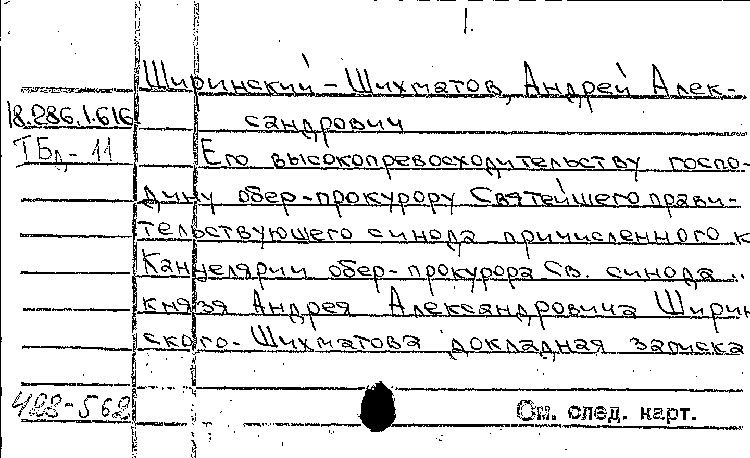 1.
Ширинский-Шихматов, Андрей Алек-
18.286.1.616 сандрович
ТБд-11 Его высокопревосходительству госпо-
дину обер-прокурору Святейшего прави-
тельствующего синода причисленного к
Канцелярии обер-прокурора Св. синода..
князя Андрея Александровича Ширин
ского-Шихматова докладная записка
488-568 См. след. карт.